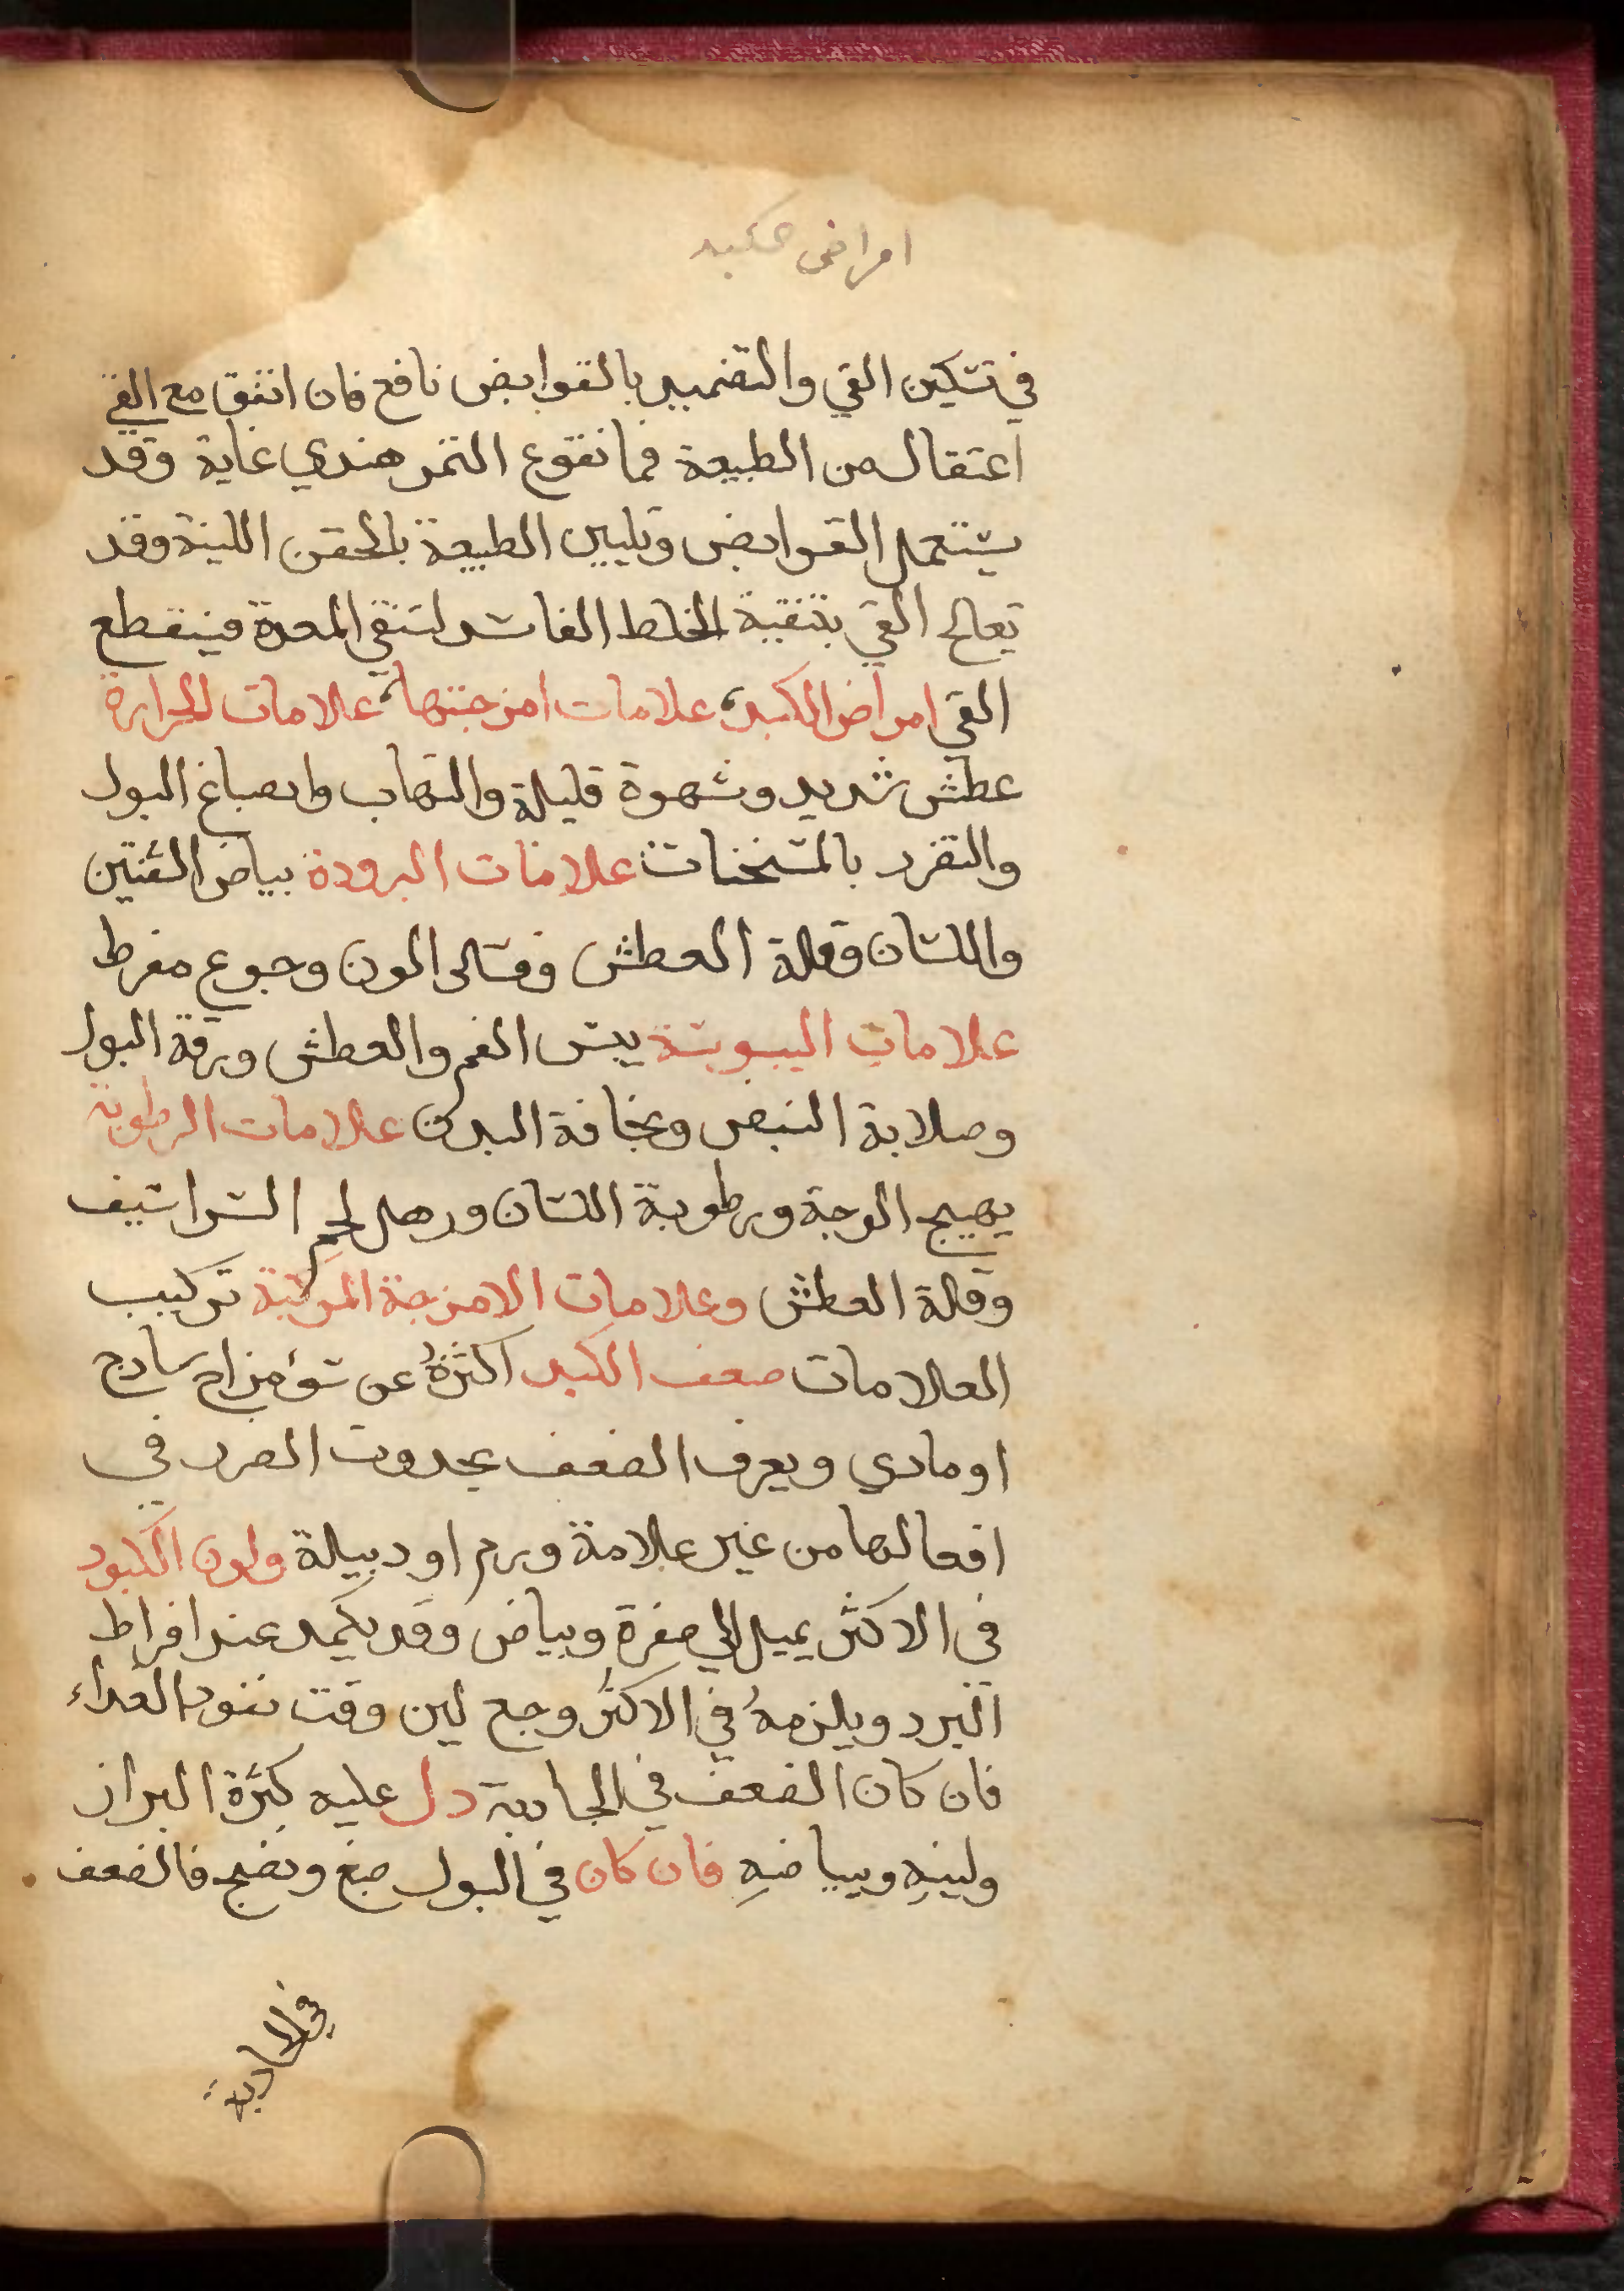 امراض الكبد
في تسكين القي والتضميد بالقوابض نافع فان اتفق مع القي
اعتقال من الطبيعة فما نقوع التمر هندي غاية وقد
يستعمل القوابض وتليين الطبيعة بالحقن اللينة وقد
تعالج القي بتنقية الخلط الفاسد لتنقي المعدة فينقطع
القي امراض الكبد علامات امزجتها علامات الحرارة
عطش شديد وشهوة قليلة والتهاب وانصباغ البول
والتضرر بالمسخنات علامات البرودة بياض الشفتين
واللسان وقلة العطش وفساد اللون وجوع مفرط
علامات اليبوسة يبس الفم والعطش ورقة البول
وصلابة النبض ونحافة البدن علامات الرطوبة
يهيج الوجه ورطوبة اللسان ورهل لحم الشراسيف
وقلة العطش وعلامات الامزجة المركبة تركيب
العلامات ضعف الكبد اكثرهُ عن سؤ مزاج ساذج
او مادي ويعرف الضعف بحدوث الضرر في
افعالها من غير علامة ورم او دبيلة ولون الكبود
في الاكثر يميل الي صفرة وبياض وقد يكمد عند افراط
البرد ويلزمهُ في الاكثر وجع لين وقت نفود الغداء
فان كان الضعف في الجاذبة دل عليه كثرة البراز
ولينهِ وبياضهِ فان كان في البول صبغ ونضج فالضعف
في الجاذبة